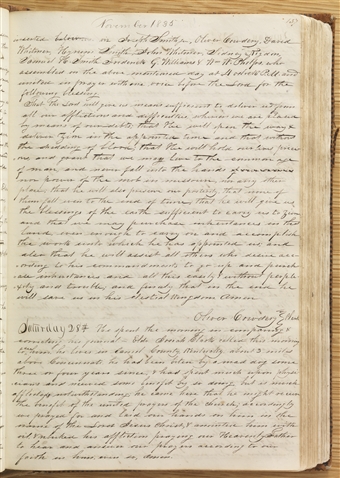 November 1835
sented below viz Joseph Smith Jr, Oliver Cowdery, David
Whitmer, Hyrum Smith John Whitmer, Sidney Rigdon,
Samuel H. Smith Frederick G. Williams & Wm W. Phelps who
assembled on the above mentioned day at 4 o clock P.M and
united in prayer with one voice before the Lord for the
following blessings
That the Lord will give us means sufficient to deliver us from
all our afflictions and difficulties, wherein we are placed
by means of our debts; that he will open the way &
deliver Zion in the appointed time and that without
the shedding of blood; that he will hold our lives precious
and grant that we may live to the common age
of man, and never fall into the hands
nor power of the mob in Missourie nor in any other
place; that he will also preserve our posterity, that none of
them fall even to the end of time; that he will give us
the blessings of the earth sufficient to carry us to Zion
and that we may purchase inheritances in that
land, even enough to carry on and accomplish
the work unto which he has appointed us; and
also that he will assist all others who desire,
to his commandments, to go up and purchase
inheritances, and all this easily & without perplexity
and trouble; and finally, that in the end he
will save us in his Celestial Kingdom. Amen.
Oliver Cowdery Clerk
Saturday 28th spent the morning in comparing &
correcting my journal. – Elder Josiah Clark called this morning
to
above he had been bitten by a mad dog some
three or four years since, & has spent much upon
and received some benefit by so doing but is much
afflicted notwithstanding, he came here that he might receive
the benefit of the united prayers of the church, accordingly
we prayed for and laid our hands on him in the
name of the Lord Jesus Christ & anointed him with
oil, & rebuked his affliction praying our Heavenly Father
to hear and answer our prayers according to our
faith